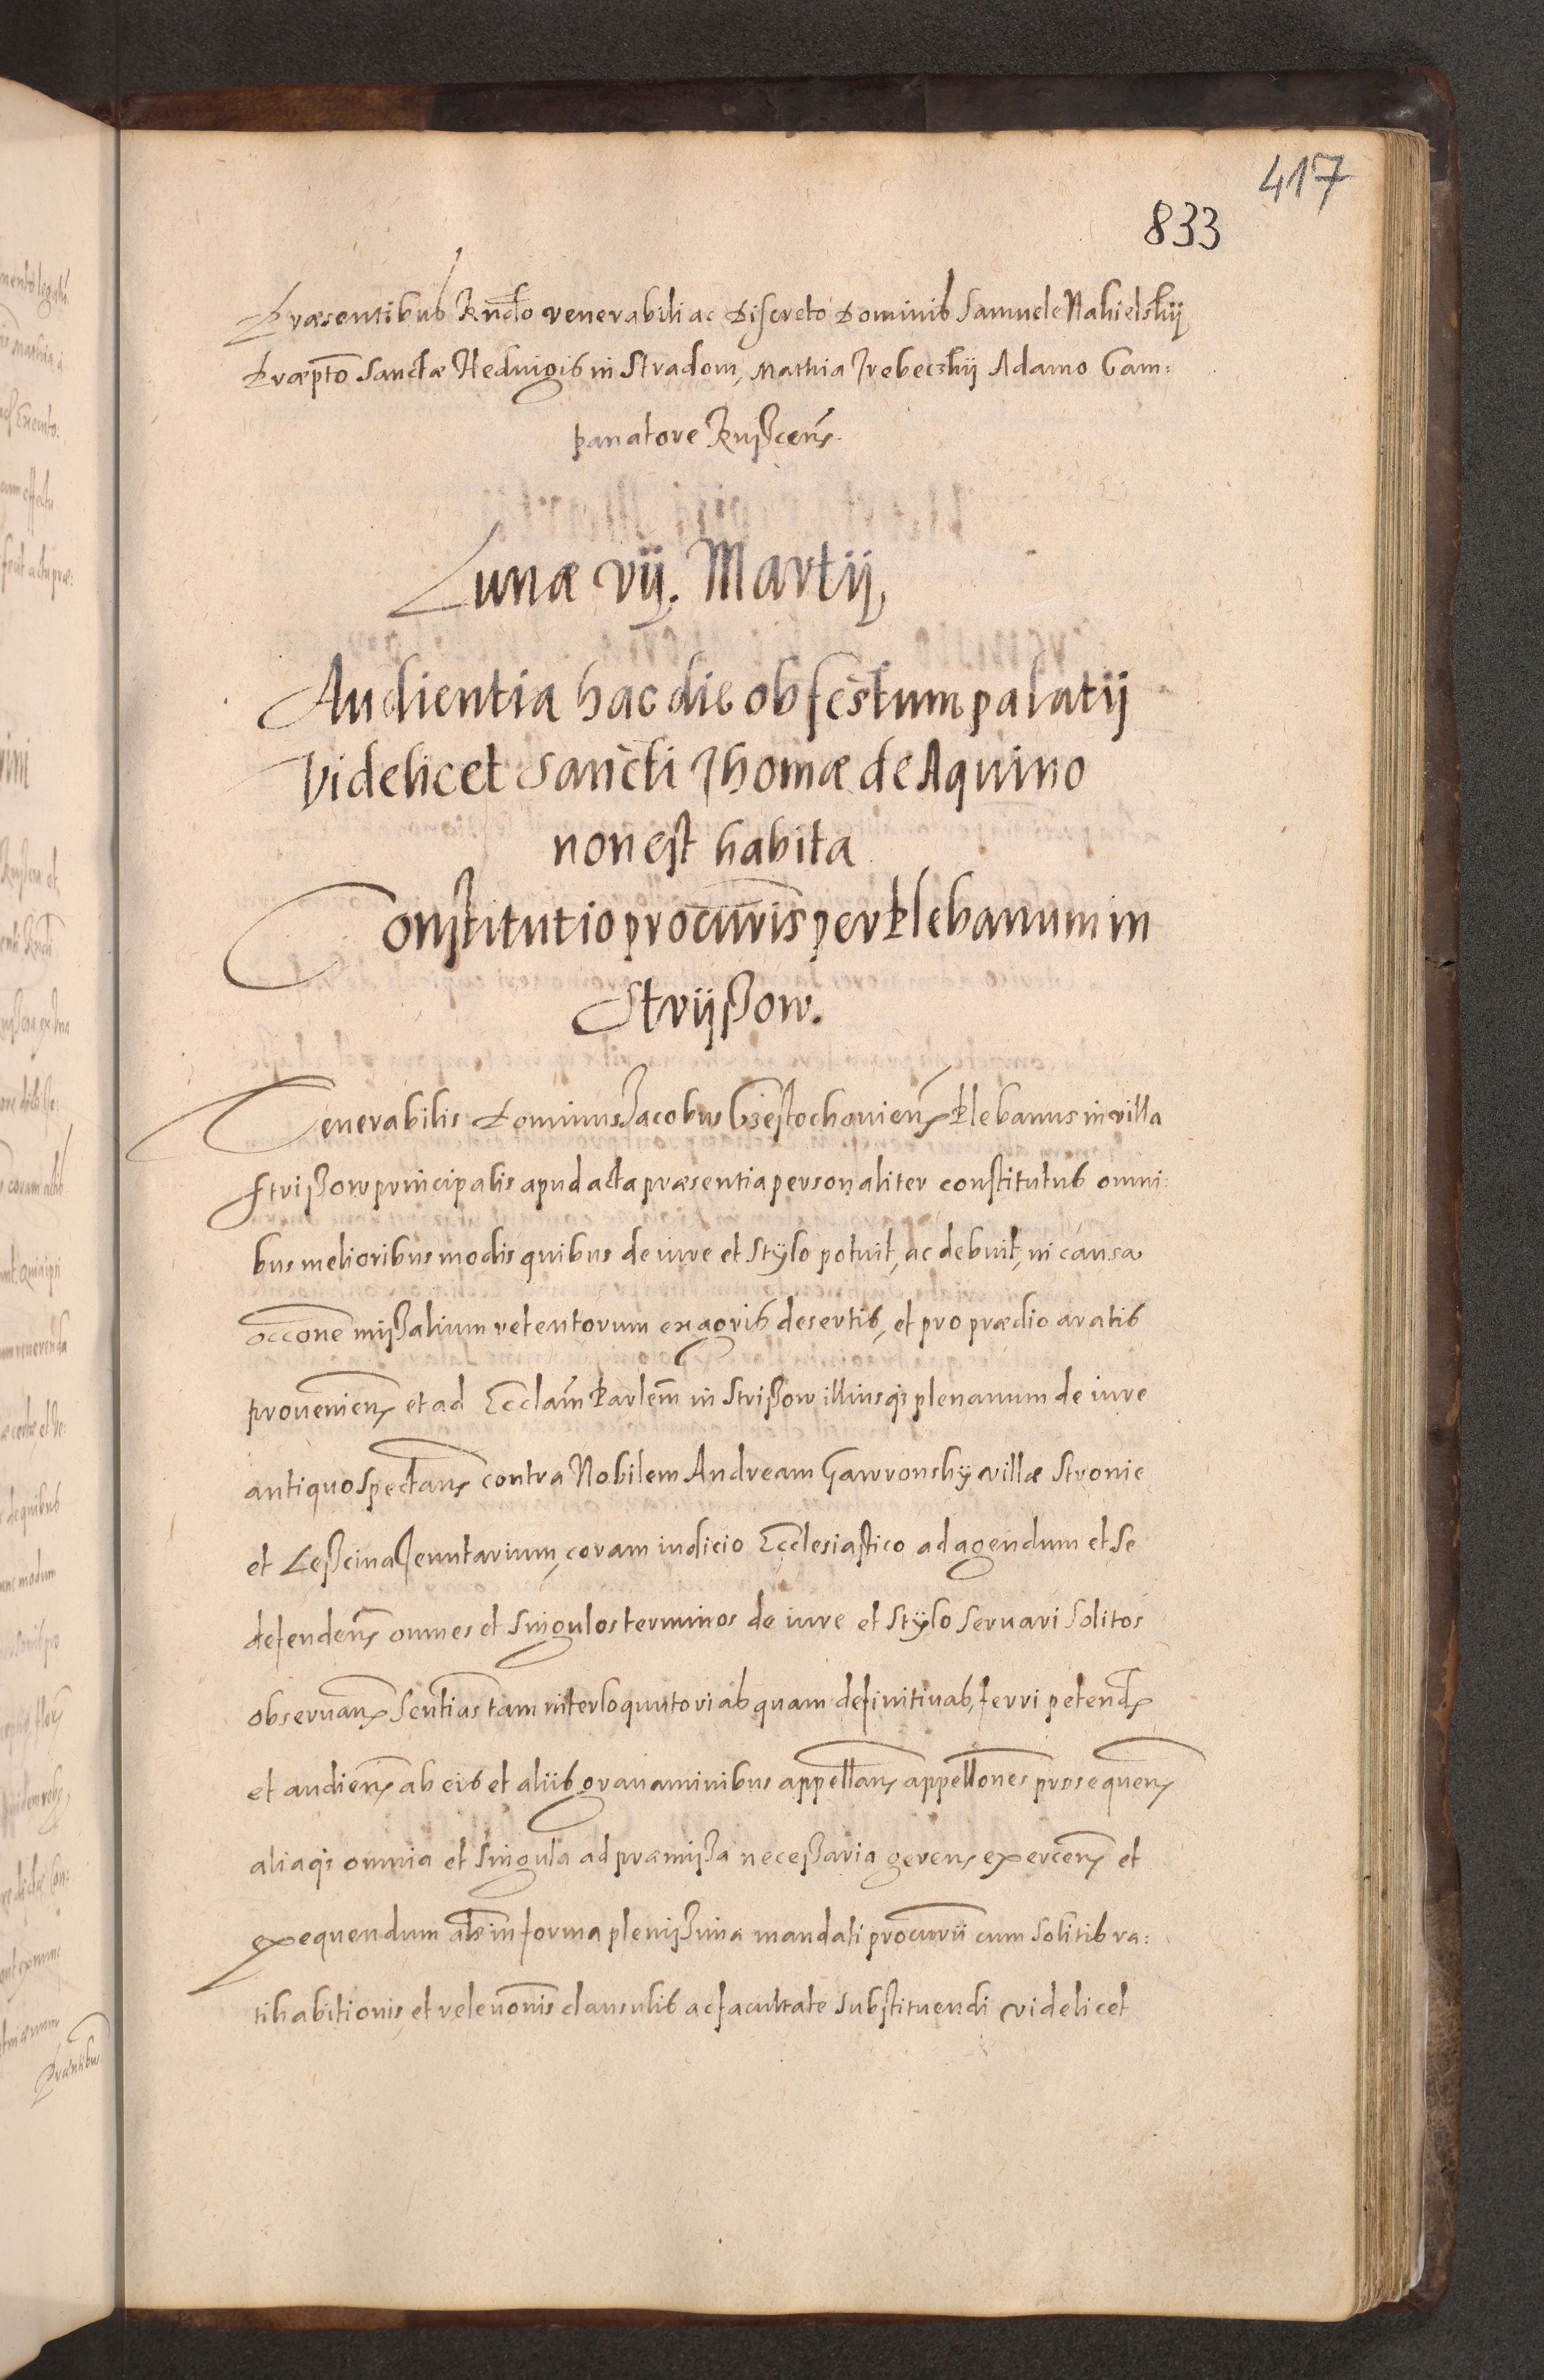 417
833
Præsentibus Rndo venerabili ac Discreto Dominis Samuele Nakielskÿ
Præpto Sanctæ Heduigis in Stradom, Mathia Trebeczkÿ Adamo Cam:
panatore Rußcens.
Lunæ vij. Martij,
Audientia hac die ob festum palatij
Videlicet Sancti Thomæ de Aquino
non est habita
Constitutio procuris per Plebanum in
Strijßow.
Venerabilis Dominus Jacobus Czestochouiens Plebanus in villa
Strißow principalis apud acta præsentia personaliter constitutus omni:
bus melioribus modis quibus de iure et stÿlo potuit, ac debuit, in causa
occone mißalium retentorum ex agris desertis, et pro prædio aratis
prouenien et ad Ecclam Parlem in Strißow illiusq; plenanum de iure
antiquo spectan contra Nobilem Andream Gawronskÿ villæ Stronie
et Leßcina Tenutarium, coram iudicio Ecclesiastico ad agendum et se
defenden omnes et singulos terminos de iure et stÿlo seruari solitos
obseruan sentias tam interloquutorias quam definitiuas, ferri petend
et audien ab eis et aliis grauaminibus appellan appellones prosequen
aliaq; omnia et singula ad præmißa neceßaria geren exercen et
exequendum als in forma plenißima mandati procurii cum solitis ra:
tihabitionis, et releuonis clausulis ac facultate substituendi videlicet